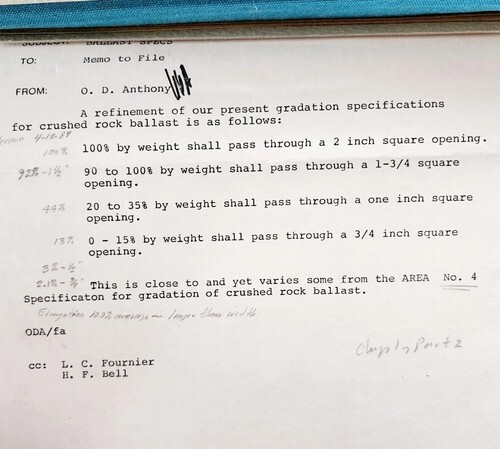 SUBJECT: BALLAST SPECS
TO: Memo to File
FROM: O. D. Anthony
A refinement of our present gradation specifications
for crushed rock ballast is as follows:
100% 100% by weight shall pass through a 2 inch square opening.
92% - 1½" 90 to 100% by weight shall pass through a 1-3/4 square
opening.
44% 20 to 35% by weight shall pass through a one inch square
opening.
13% 0 - 15% by weight shall pass through a 3/4 inch square
opening.
3% - ½"
This is close to and yet varies some from the AREA No. 4
Specificaton for gradation of crushed rock ballast.
longer than width
ODA/fa
cc: L. C. Fournier
H. F. Bell
Part 2